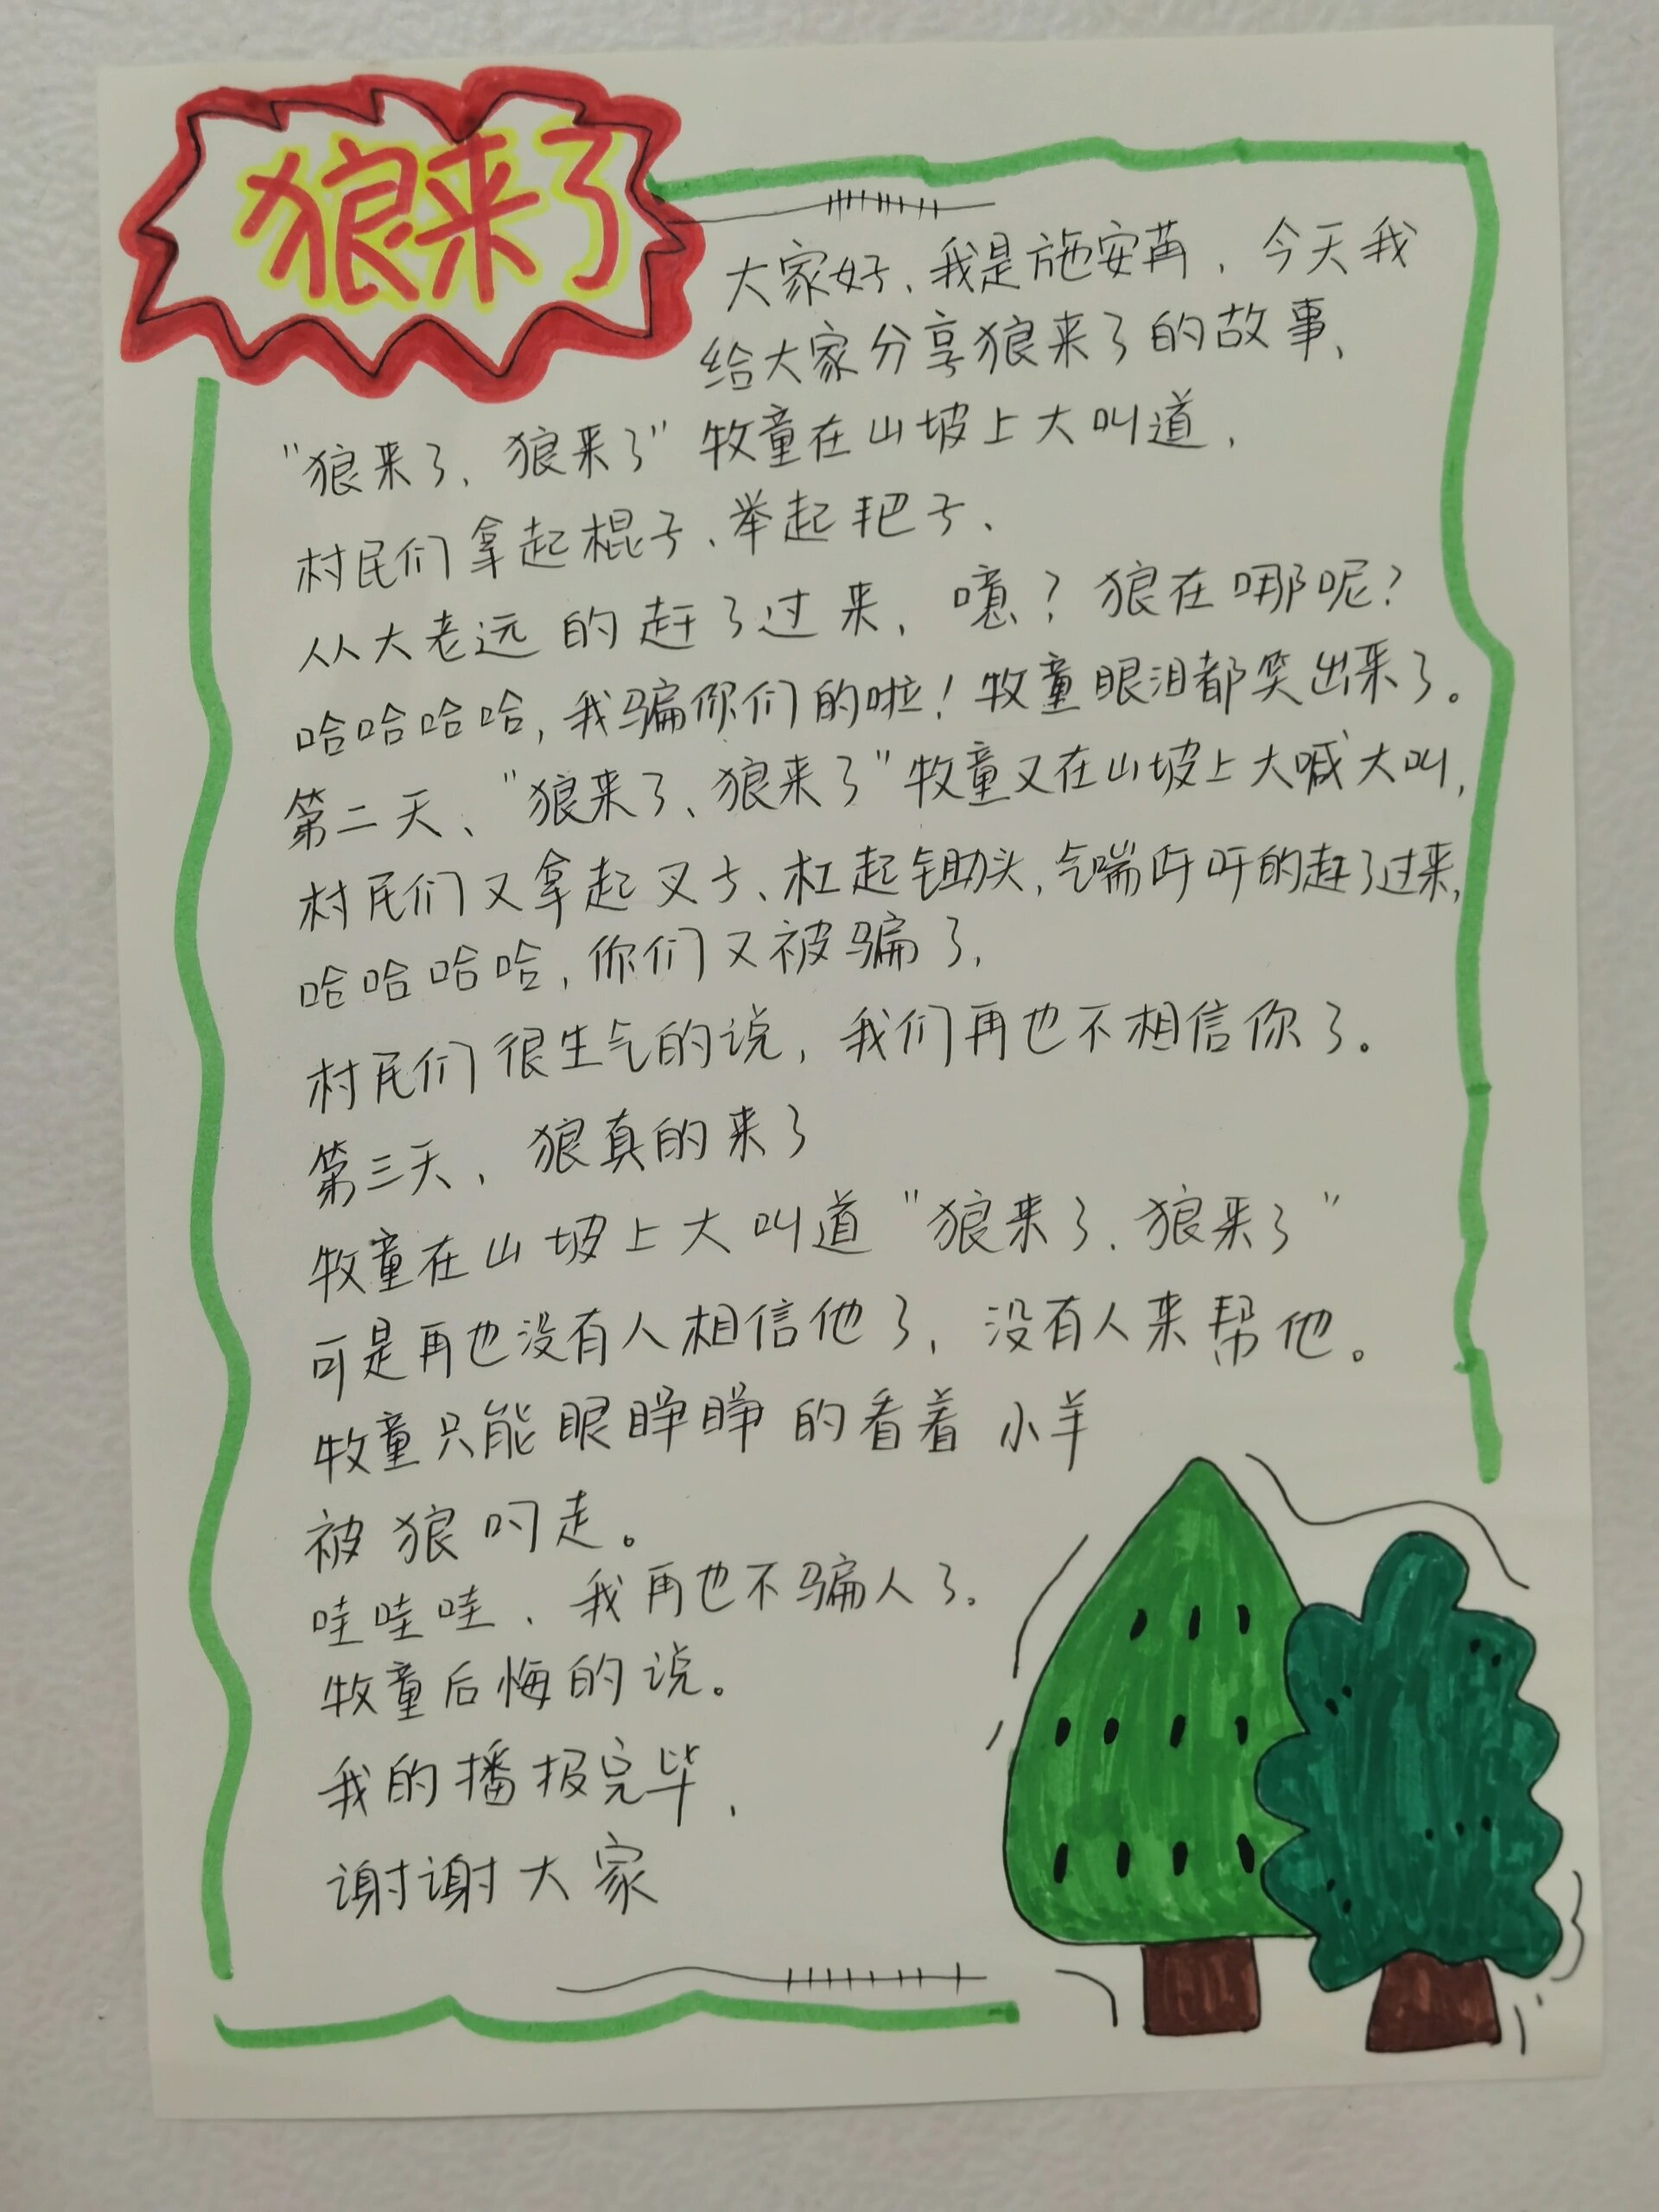 狼来了
大家好、我是施安苒，今天我
给大家分享狼来了的故事、
"狼来了、狼来了"牧童在山坡上大叫道，
村民们拿起棍子、举起耙子、
从大老远的赶了过来，噫？狼在哪呢？
哈哈哈哈，我骗你们的啦！牧童眼泪都笑出来了。
第二天、"狼来了、狼来了"牧童又在山坡上大喊大叫，
村民们又拿起叉子、杠起锄头，气喘吁吁的赶了过来，
哈哈哈哈，你们又被骗了，
村民们很生气的说，我们再也不相信你了。
第三天、狼真的来了
牧童在山坡上大叫道"狼来了、狼来了"
可是再也没有人相信他了，没有人来帮他。
牧童只能眼睁睁的看着小羊
被狼叼走。
哇哇哇、我再也不骗人了。
牧童后悔的说。
我的播报完毕，
谢谢大家